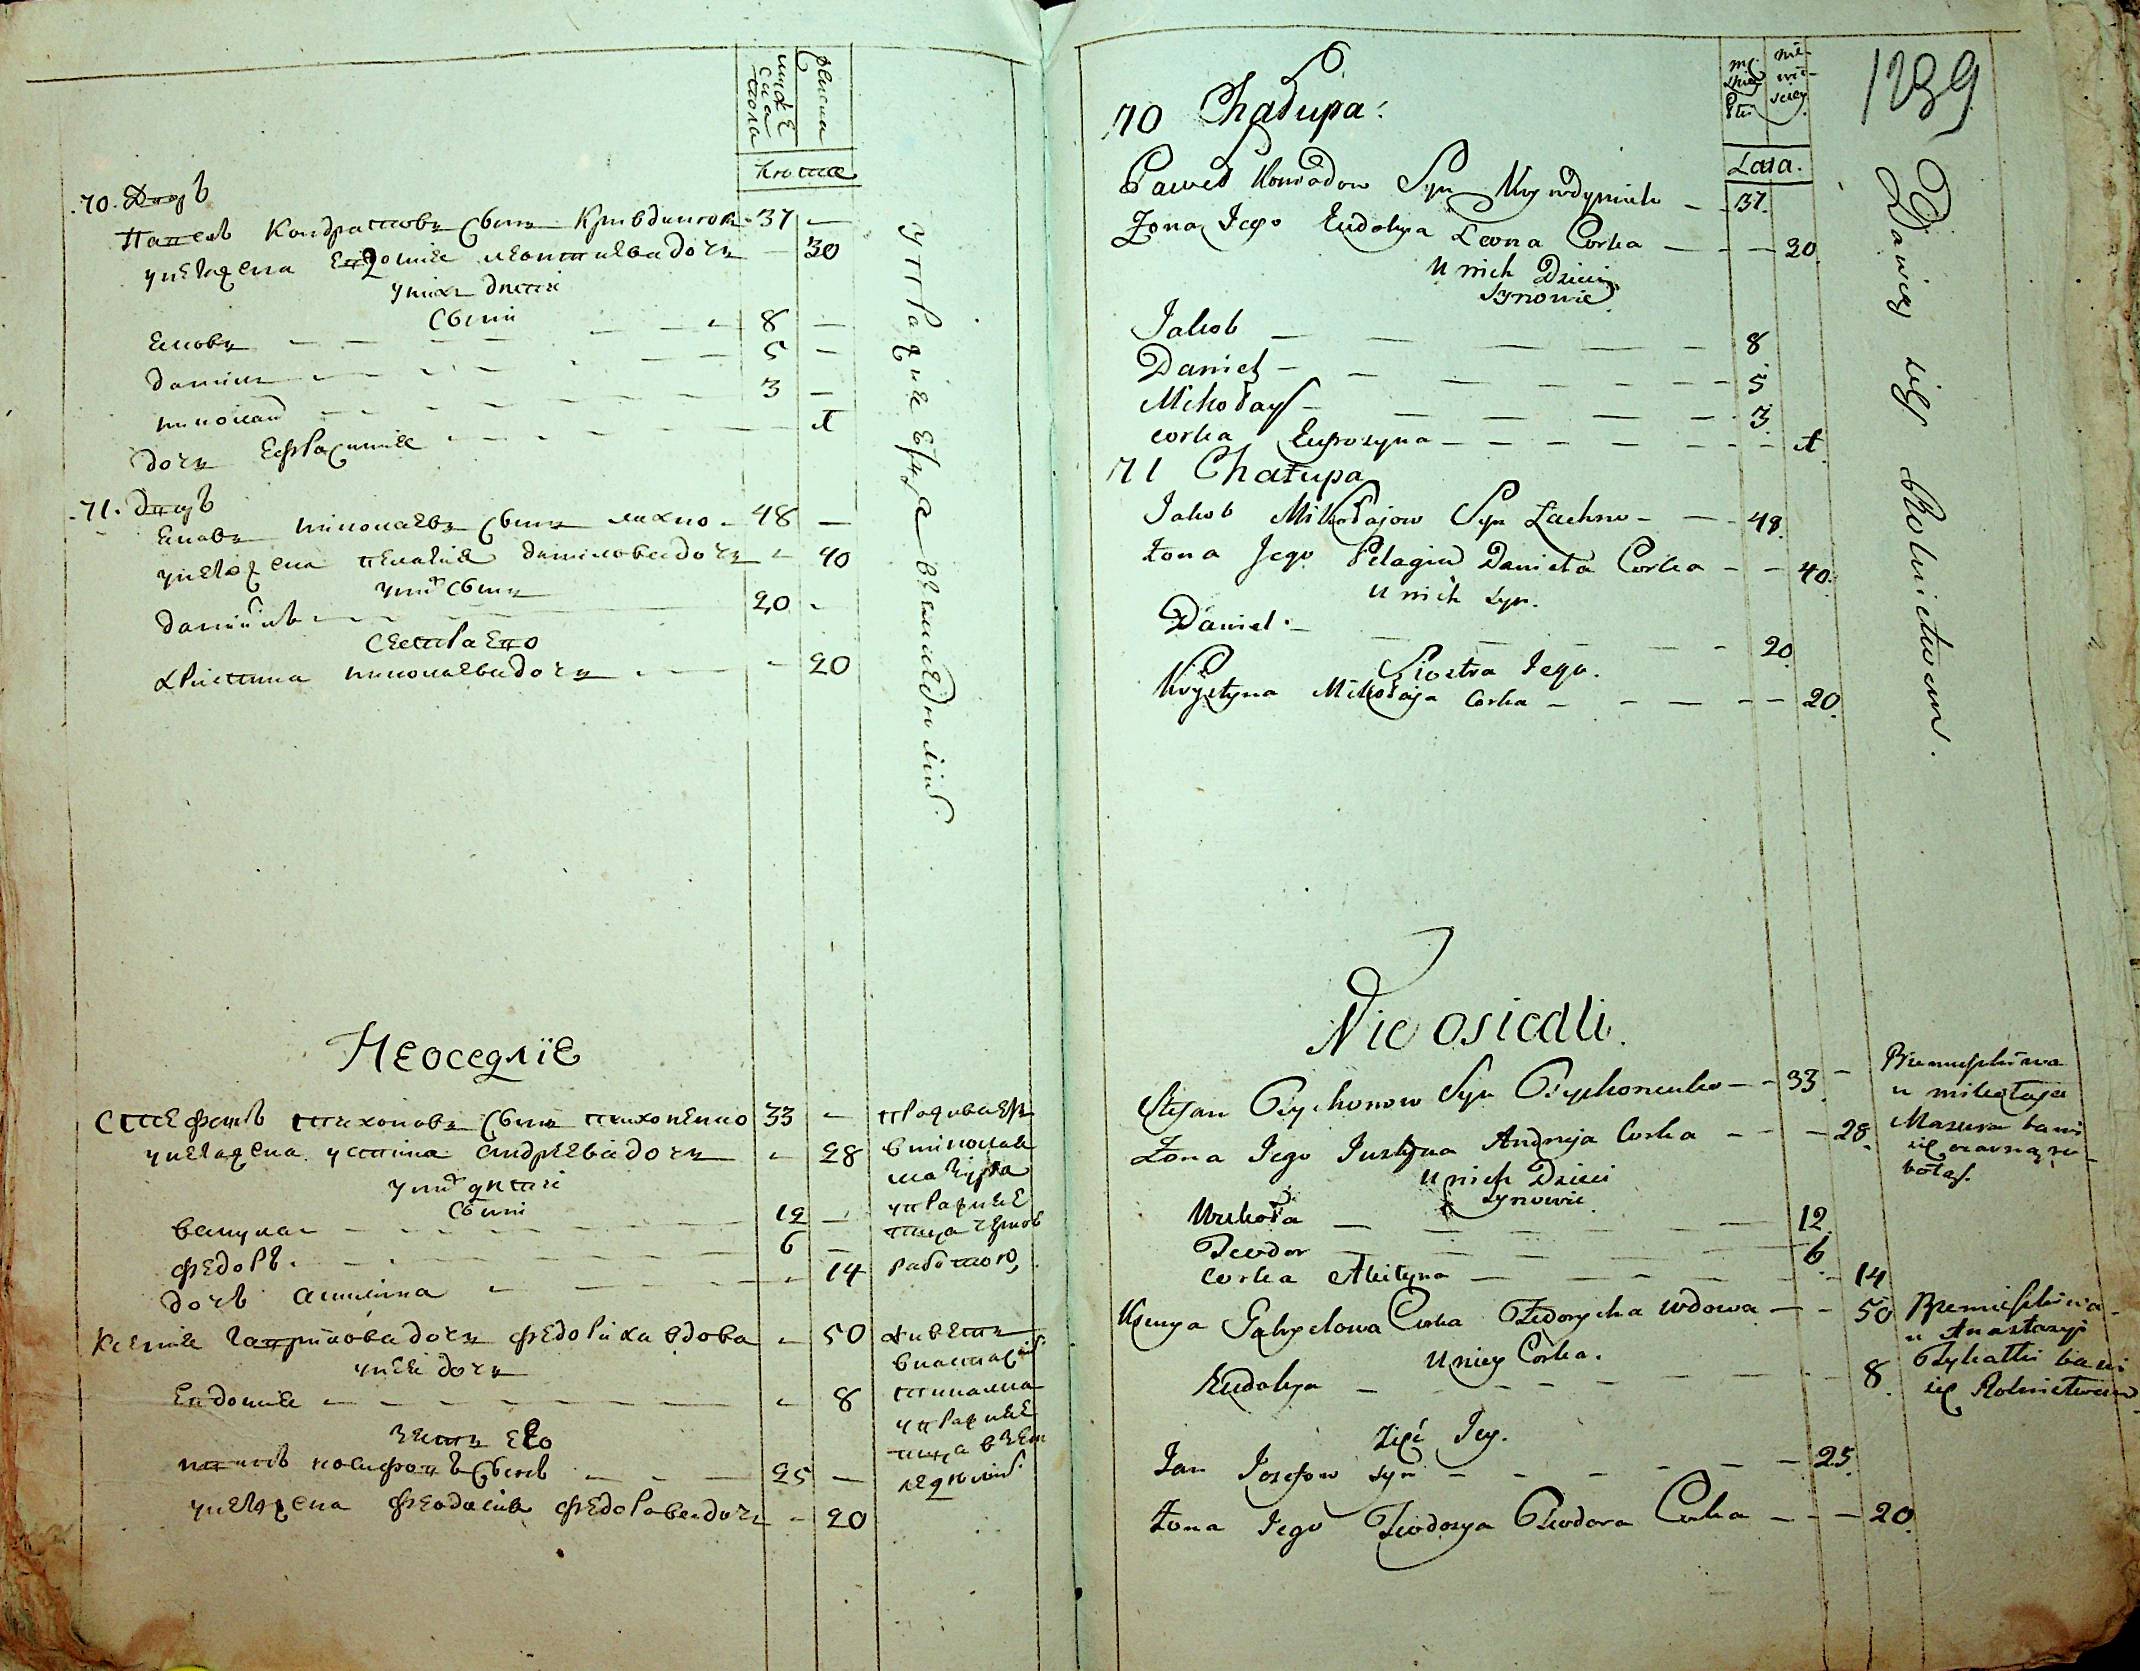 мужеска пола
женска
лѣта
70. Дворъ
Павелъ Кондратовъ сынъ Кривдинюкъ 37 —
у него жена Евдокия Леонтиева дочь — 30
у нихъ дѣти
сыни
Яковъ — 8 —
Данилъ — 5 —
Николай — 3 —
дочь Ефросиния — 1
71. Дворъ
Яковъ Николаевъ сынъ Лахно 48 —
у него жена Пелагия Данилова дочь — 40
у них сынъ
Даниилъ — 20 —
сестра его
Христина Николаева дочь — 20
упражняется в земледелии.
Неоседлїе
Стефанъ Тихоновъ сынъ Тихоненко 33 —
у него жена Устина Андреева дочь — 28
у них дѣти
сыни
Вакула — 12 —
Федоръ — 6 —
дочь Акилина — 14
Ксения Гаврилова дочь Федориха вдова — 50
у неи дочь
Евдокия — 8
зять ее
Иванъ Иосифовъ сынъ — 25 —
у него жена Феодосия Федорова дочь — 20
проживаетъ
в Николая
Мазура
упражняе
тца черной
работою
живетъ
в Настасии
упражняе
тца в зем
леделии
1239
męzkiey Płci
niewiesciey
Lata.
70 Chałupa.
Paweł Kondradow Syn Krywdyniuk — 37.
Zona Jego Eudokya Leona Corka — 30.
U nich Dzieci
Synowie
Jakob — 8
Daniel — 5
Mikołay — 3
corka Eufrozyna — 1
71 Chałupa
Jakob Mikołajow Syn Lachno — 48.
Zona Jego Pelagia Daniela Corka — 40.
U nich syn.
Daniel — 20
Siostra Jego.
Krystyna Mikołaja Corka — 20.
Bawią się Rolnictwem.
Nie osiedli.
Stefan Tychonow Syn Tychonenko — 33 —
Zona Jego Justyna Andreja Corka — 28.
U nich Dzieci
synowie
Wukoła — 12
Teodor — 6
corka Akityna — 14
Ksenya Gabryelowa Corka Fedorycha wdowa — 50
U niey Corka.
Eudokya — 8
Zięć Jey.
Jan Jozefow syn — 25
Zona Jego Teodozya Teodora Corka — 20.
Przemieszkiwa
u mikołaja
Mazura bawi
się czarną ro-
botą.
Przemieszkiwa
u Anastazyi
bawi
się Rolnictwem